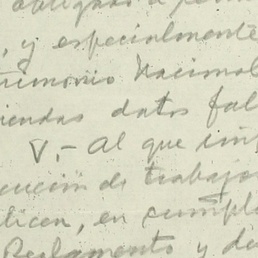 obligado a
, y especialmente
trimonio Nacional
iendas datos fal
V.- Al que imp
cución de trabajos
liccen, en cumpli
Reglamento y de